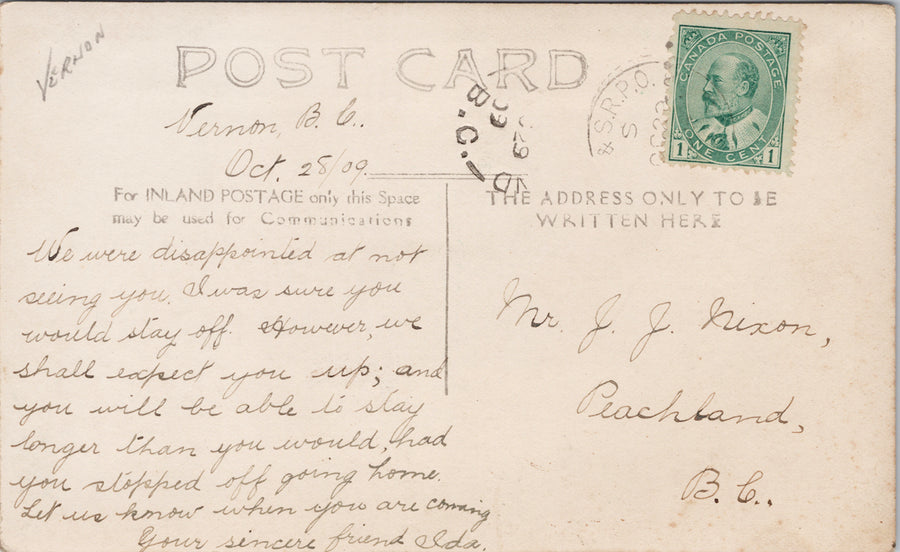 VERNON
POST CARD
CANADA POSTAGE
1 ONE CENT 1
& S.R.P.O.
S
B.C.
Vernon, B. C..
Oct. 28/09.
For INLAND POSTAGE only this Space
may be used for Communications
THE ADDRESS ONLY TO BE
WRITTEN HERE
We were disappointed at not
seeing you. I was sure you
would stay off. However, we
shall expect you up; and
you will be able to stay
longer than you would, had
you stopped off going home.
Let us know when you are coming
Your sincere friend Ida.
Mr. J. J. Nixon,
Peachland,
B. C..